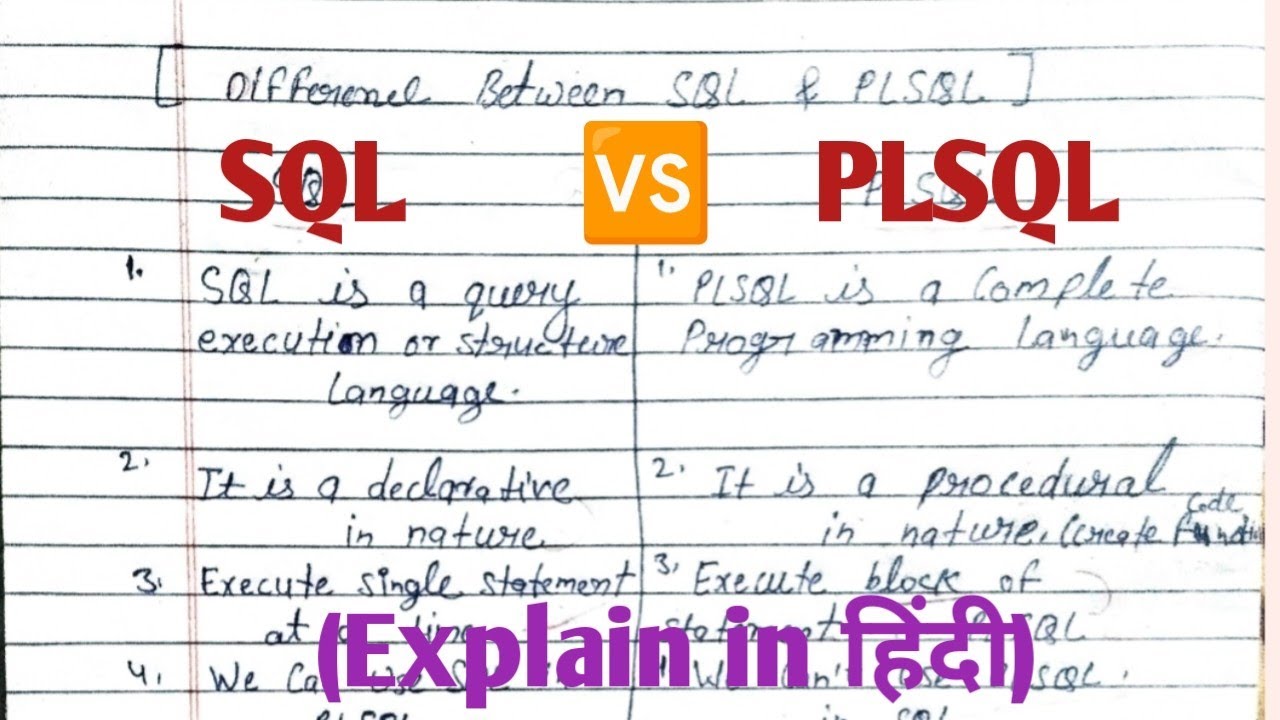 [ Difference Between SQL & PLSQL ]
SQL 🆚 PLSQL
1. SQL is a query
execution or structure
language.
1. PLSQL is a Complete
Programming language.
2. It is a declarative
in nature
2. It is a procedural
in nature. (create code,
3. Execute single statement
at
3. Execute block of
SQL
(Explain in हिंदी)
4. We
PLSQL
We Can't use SQL.
in SQL